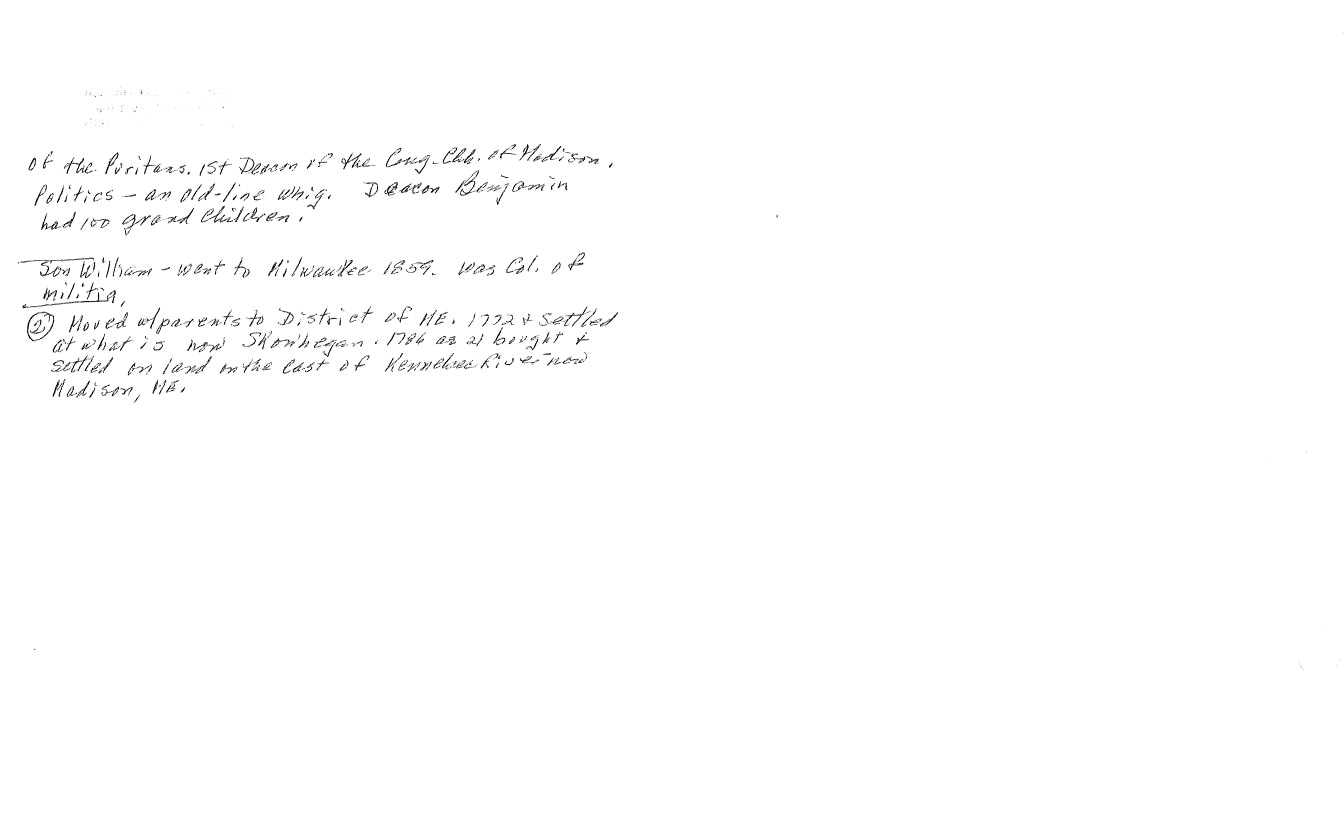 of the Puritans. 1st Deacon of the Cong. Chh. of Madison.
Politics - an old-line Whig. Deacon Benjamin
had 100 grand children.
Son William - went to Milwaukee 1859. was Col. of
militia,
② Moved w/parents to District of ME. 1772 & settled
at what is now Skowhegan. 1786 as 21 bought &
settled on land on the East of Kennebec River now
Madison, ME.